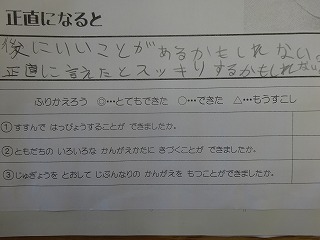 正直になると
後にいいことがあるかもしれない。
正直に言えたとスッキリするかもしれない。
ふりかえろう ◎…とてもできた ○…できた △…もうすこし
①すすんで はっぴょうすることが できましたか。
②ともだちの いろいろな かんがえかたに きづくことが できましたか。
③じゅぎょうを とおして じぶんなりの かんがえを もつことができましたか。